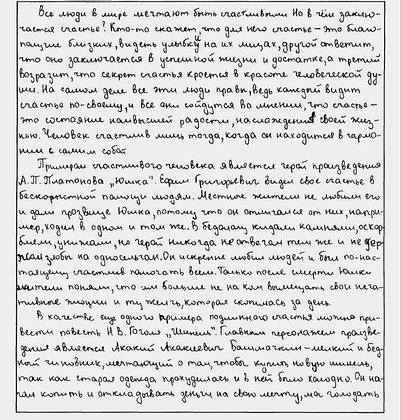 Все люди в мире мечтают быть счастливыми. Но в чём заклю-
чается счастье? Кто-то скажет, что для него счастье – это благо-
получие близких, видеть улыбку на их лицах, другой ответит,
что оно заключается в успешной жизни и достатке, а третий
возразит, что секрет счастья кроется в красоте человеческой ду-
ши. На самом деле все эти люди правы, ведь каждый видит
счастье по-своему, и все они сойдутся во мнении, что счастье –
это состояние наивысшей радости, наслаждения своей жиз-
нью. Человек счастлив лишь тогда, когда он находится в гармо-
нии с самим собой.
Примером счастливого человека является герой произведения
А.П. Платонова „Юшка". Ефим Григорьевич видел свое счастье в
бескорыстной помощи людям. Местные жители не любили его
и дали прозвище Юшка, потому что он отличался от них, напри-
мер, ходил в одном и том же. В беднягу кидали камнями, оскор-
бляли, унижали, но герой никогда не отвечал тем же и не дер-
жал злобы на односельчан. Он искренне любил людей и был по-нас-
тоящему счастлив помогать всем. Только после смерти Юшки
жители поняли, что им больше не на ком вымещать свои нега-
тивные эмоции и ту желчь, которая скопилась за день.
В качестве еще одного примера подлинного счастья можно при-
вести повесть Н.В. Гоголя „Шинель". Главным персонажем произве-
дения является Акакий Акакиевич Башмачкин – мелкий и бед-
ный чиновник, мечтающий о том, чтобы купить новую шинель,
так как старая одежда прохудилась и в ней было холодно. Он на-
чал копить и откладывать деньги на свою мечту, мог голодать